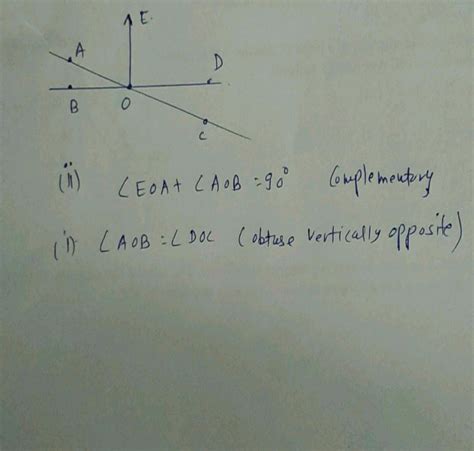 E.
A
D
B
O
C
(ii) ∠EOA + ∠AOB = 90° Complementary
(i) ∠AOB = ∠DOC (obtuse vertically opposite)